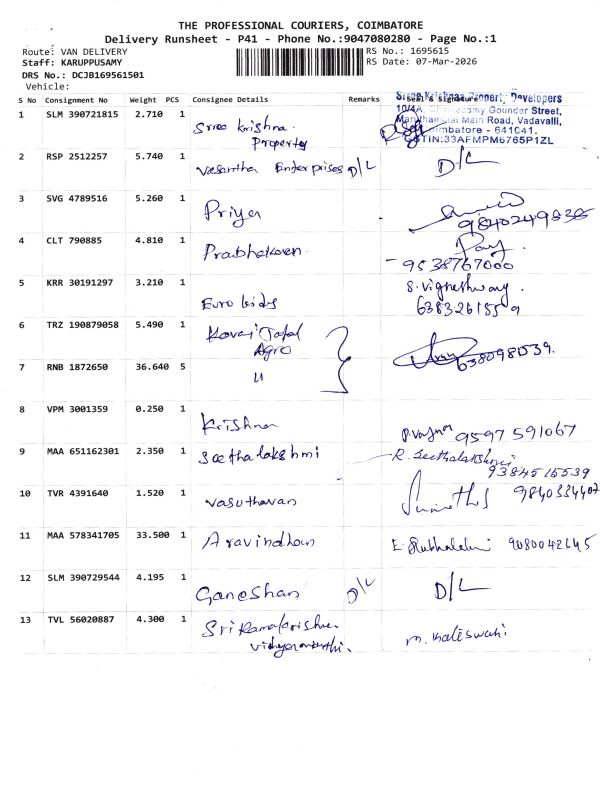 THE PROFESSIONAL COURIERS, COIMBATORE
Delivery Runsheet - P41 - Phone No.:9047080280 - Page No.:1
Route: VAN DELIVERY
RS No.: 1695615
Staff: KARUPPUSAMY
RS Date: 07-Mar-2026
DRS No.: DCJB169561501
Vehicle:
S No Consignment No Weight PCS Consignee Details Remarks Seal & Signature
Sree Krishnaa Property Developers
10/4A, Chinnasamy Gounder Street,
Maruthamalai Main Road, Vadavalli,
Coimbatore - 641041.
GSTIN:33AFMPM6765P1ZL
1 SLM 390721815 2.710 1 Sree Krishna
Property
2 RSP 2512257 5.740 1 Vasantha Enterprises D/L D/L
3 SVG 4789516 5.260 1 Priya
4 CLT 790885 4.810 1 Prabhakaran
9538767000
5 KRR 30191297 3.210 1 Euro kids S. Vigneshwary.
6 TRZ 190879058 5.490 1 Kovai
Agro
7 RNB 1872650 36.640 5 "
8 VPM 3001359 0.250 1 Krishna 9597 591067
9 MAA 651162301 2.350 1 Seethalakshmi R. Seethalakshmi
9384515539
10 TVR 4391640 1.520 1 Vasuthavan
11 MAA 578341705 33.500 1 Aravindhan
12 SLM 390729544 4.195 1 Ganeshan D/L D/L
13 TVL 56020887 4.300 1 Sri Ramakrishna M. Kaleswari